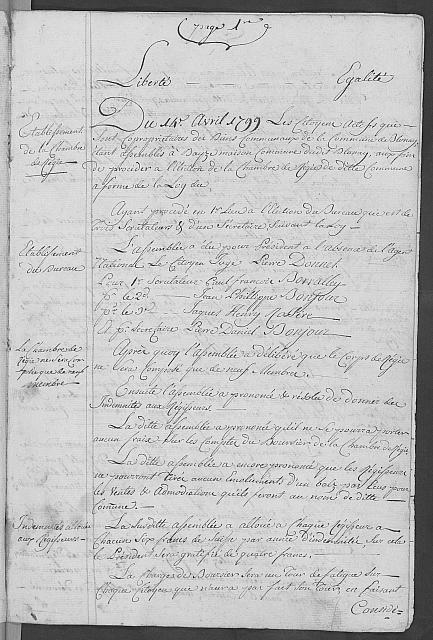 page 1re
Liberté Egalité
Du 14e Avril 1799 Les Citoyens Actifs que
sont Copropriétaires des Biens Communaux de la Commune de Blonay
étant assemblés à maison Commune dudit Blonay, aux fins
de procéder à l'Election de la Chambre de Régie de ditte Commune
a forme de la Loy du
Etablissement
de la Chambre
de Régie
Ayant procédé en 1er lieu à l'Election du Bureau que est de
trois Scrutateurs & d'un Secretaire Suivant la Loy -
Etablissement
du Bureau
L'assemblée a élu pour Président a l'absence de l'agent
National Le Citoyen Juge Pierre Donnet
Pour 1r Scrutateur Paul François
pr le 2d — Jean Philippe Bonjour
pr le 3e — Jaques Henry
& pr Secretaire Pierre Daniel Bonjour
La Chambre de
Régie ne sera com-
posée que de neuf
membre
Après quoy l'assemblée a délibéré que le Corps de Régie
ne Sera Composé que de neuf Membres.
Ensuite l'assemblée a prononcé & résolu de donner des
Indemnités aux Régisseurs
La ditte assemblée a prononcé qu'il ne se pourra porter
aucun fraix Sur les Comptes du Boursier de la Chambre de Régie
La ditte assemblée a encore prononcé que les Régisseurs
ne pourront tirer aucun Emolument d'un batz par Écus pour
les Ventes & Admodiations qu'ils feront au nom de ditte
Commune —
Indemnités allouées
aux Régisseurs —
La Susditte assemblée a alloué à Chaque Régisseur a
Chacun Six francs de Suisse par année d'indemnité, Sur cela
le Président Sera gratifié de quatre francs.
La Charge de Boursier Sera un Tour de fatigue Sur
Chaque Citoyen que n'aura pas fait Son Tour, en faisant
Considé-